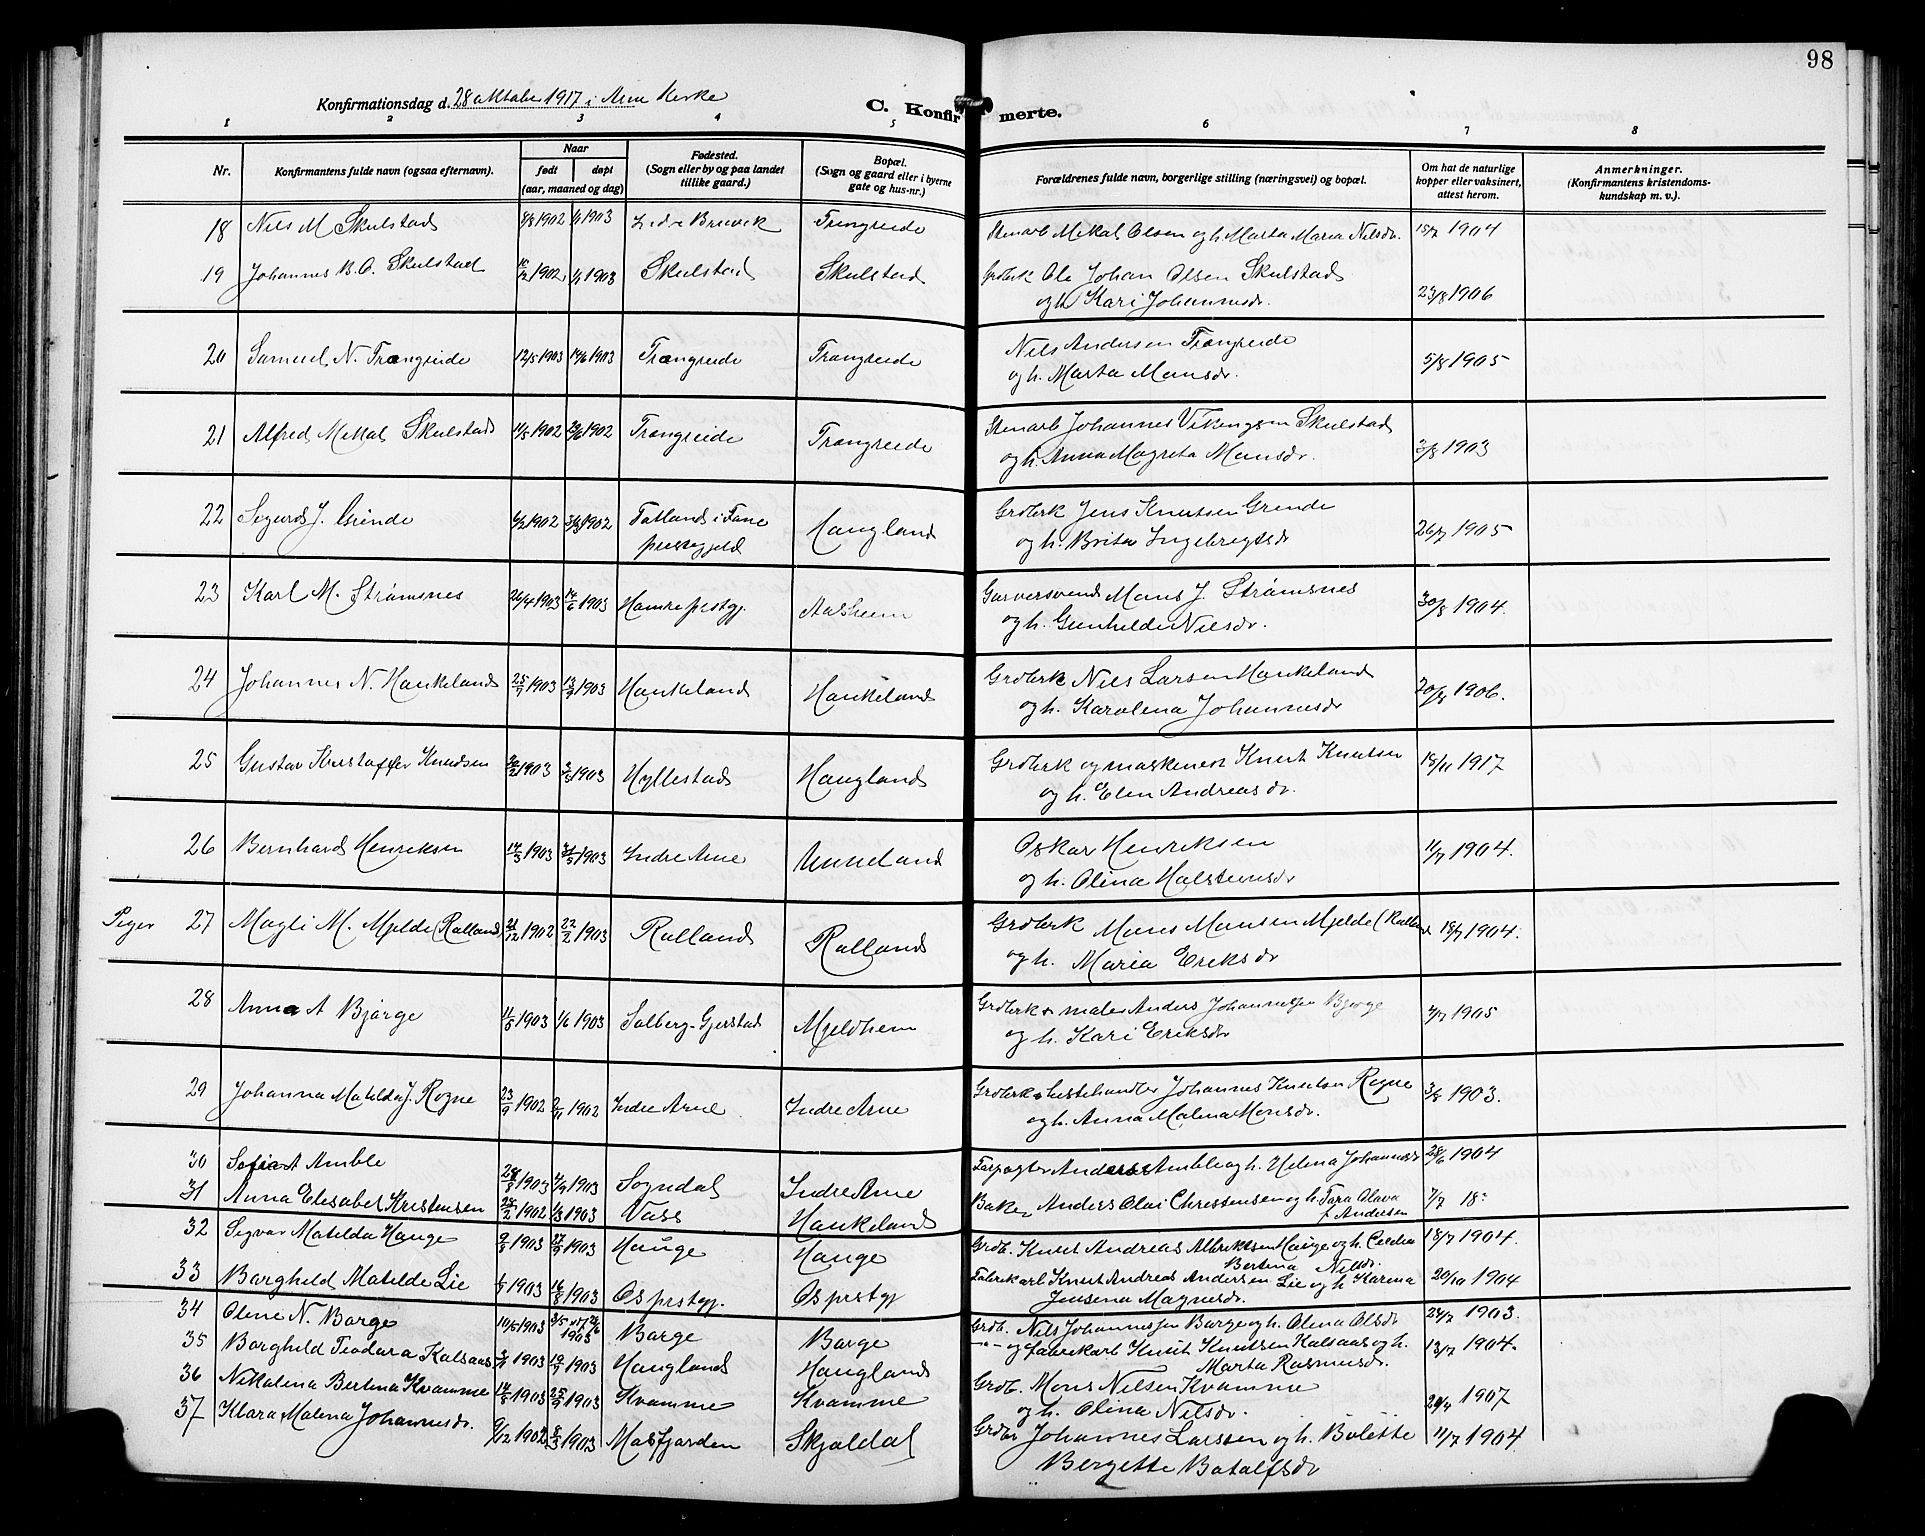 98
Konfirmationsdag d. 28 oktober 1917 i Arne Kirke
C. Konfirmerte.
1 2 3 4 5 6 7 8
Nr.
Konfirmantens fulde navn (ogsaa efternavn).
Naar
født døpt
(aar, maaned og dag)
Fødested.
(Sogn eller by og paa landet
tillike gaard.)
Bopæl.
(Sogn og gaard eller i byerne
gate og hus-nr.)
Forældrenes fulde navn, borgerlige stilling (næringsvei) og bopæl.
Om hat de naturlige
kopper eller vaksinert,
attest herom.
Anmerkninger.
(Konfirmantens kristendoms-
kundskap m. v.)
18 Nils M Skulstad 1902 1903 Indre Brevik Trængreide Stenarb Mikal Olsen og h. Marta Maria Nilsdr. 15/7 1904
19 Johannes B. O. Skulstad 1902 1903 Skulstad Skulstad Grdbrk Ole Johan Olsen Skulstad
og h Kari Johannesdr. 23/8 1906
20 Samuel N. Trængreide 12/5 1903 14/6 1903 Trængreide Trængreide Nils Andersen Trængreide
og h. Marta Monsdr. 5/8 1905
21 Alfred Mikal Skulstad 11/5 1902 29/6 1902 Trængreide Trængreide Stenarb Johannes Vikingsen Skulstad
og h. Anna Magreta Monsdr. 3/8 1903
22 Sigurd J. Grinde 1902 1902 Totland i Fane
prestegjeld Haugland Grdbrk Jens Knutsen Grinde
og h. Brita Ingebrigtsdr 26/7 1905
23 Karl M. Strømsnes 26/4 1903 14/6 1903 Hamre prstgj. Aasheim Garversvend Mons J. Strømsnes
og h. Gunhilde Nilsdr. 30/8 1904.
24 Johannes N. Haukeland 25/7 1903 13/9 1903 Haukeland Haukeland Grdbrk Nils Larsen Haukeland
og h. Karolina Johannesdr 20/8 1906.
25 Gustav Kristoffer Knudsen 1903 1903 Hyllestad Haugland Grdbrk og maskinist Knut Knutsen
og h. Elen Andreasdr. 15/11 1917
26 Bernhard Henriksen 14/3 1903 31/5 1903 Indre Arne Unneland Oskar Henriksen
og h. Olina Halsteinsdr 11/7 1904.
Piger 27 Magli M. Mjelde (Rolland) 21/12 1902 22/2 1903 Rolland Rolland Grdbrk Mons Monsen Mjelde (Rolland
og h. Maria Eriksdr 18/7 1904.
28 Anna A Bjørge 11/5 1903 1/6 1903 Solberg-Gjerstad Mjeldhem Grdbrk & maler Anders Johannesen Bjørge
og h. Kari Eriksdr 1905
29 Johanna Matilda J. Rogne 23/9 1902 2/11 1902 Indre Arne Indre Arne Grdbrk & hestehandler Johannes Knutsen Rogne
og h. Anna Malena Monsdr. 3/8 1903.
30 Sofie A Amble 28/8 1903 1903 Sogndal Indre Arne Forpagter Anders Amble og h. Helena Johannesdr 28/6 1904
31 Anna Elisabet Kristensen 1902 1/3 1903 Voss Haukeland Baker Anders Olai Christensen og h. Tora Olava
f Andersen 7/7 18:
32 Sigvor Matilda Hauge 9/8 1903 27/9 1903 Hauge Hauge Grdb. Knut Andreas Albriktsen Hauge og h.
Bertina Nilsdr. 18/7 1904.
33 Borghild Matilde Lie 1903 16/8 1903 Os prstgj. Os prstgj Fabrikarb Knut Andreas Andersen Lie og h Karina
Jensena Magnesdr. 20/10 1904
34 Oline N. Borge 10/5 1903 1903 Borge Borge Grdb. Nils Johannessen Borge og h. Olena Olsdr 24/7 1903.
35 Borghild Teodora Kalsaas 1903 19/7 1903 Haugland Haugland —"— og fabrikarb Knut Knutsen Kalsaas og h.
Marta Rasmusdr. 13/7 1904.
36 Nikolina Bertina Kvamme 14/8 1903 25/9 1903 Kvamme Kvamme Grdb. Mons Nilsen Kvamme
og h. Olina Nilsdr. 1907
37 Klara Malena Johannesdr. 9/12 1902 8/3 1903 Masfjorden Skjoldal Grdbr Johannes Larssen og h. Bolette
Bergette Botolfsdr 11/7 1904.